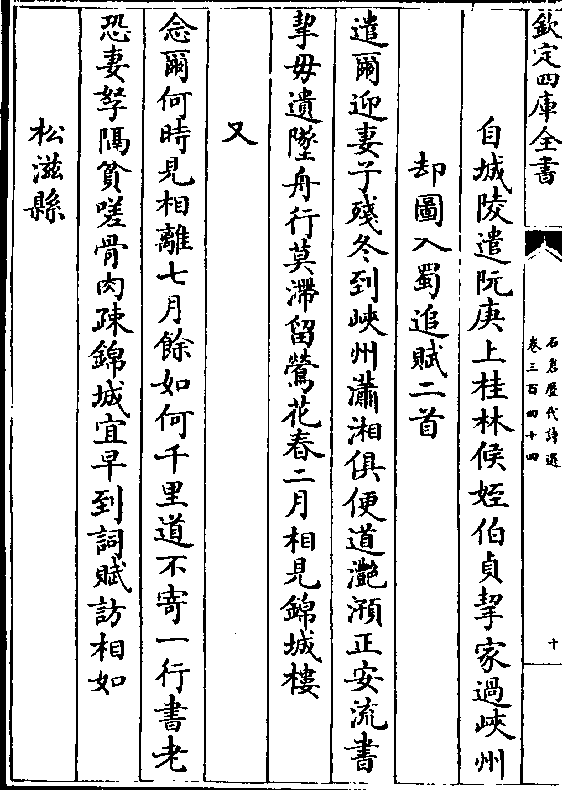 欽定四庫全書
石倉歷代詩選
卷三百四十四
十
自城陵遣阮庚上桂林候姪伯貞挈家過峽州
却圖入蜀追賦二首
遣爾迎妻子殘冬到峽州瀟湘俱便道灔澦正安流書
挈毋遺墜舟行莫滯留鶯花春二月相見錦城樓
又
念爾何時見相離七月餘如何千里道不寄一行書老
恐妻孥隔貧嗟骨肉疎錦城宜早到詞賦訪相如
松滋縣